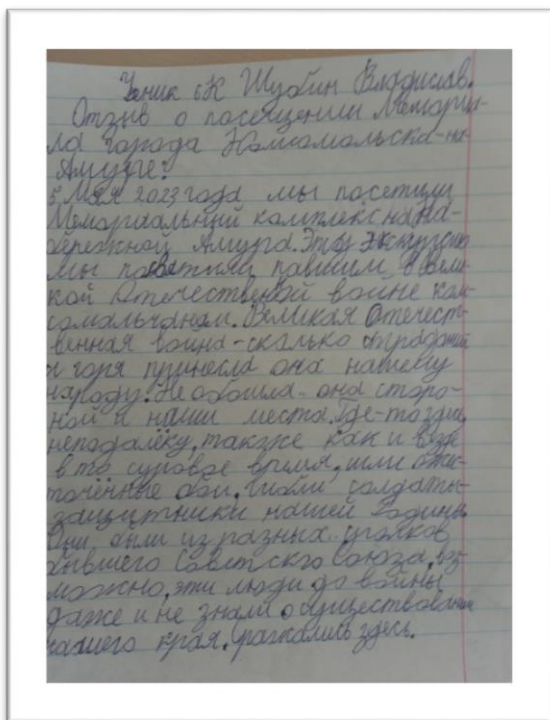 Ученик 6К Шубин Владислав.
Отзыв о посещении Мемориа-
ла города Комсомольска-на-
Амуре.
5 Мая 2023 года мы посетили
Мемориальный комплекс на на-
бережной Амура. Эту экскурсию
мы посвятили павшим в Вели-
кой Отечественной войне ком-
сомольчанам. Великая Отечест-
венная война-сколько страданий
и горя принесла она нашему
народу. Не обошла она сторо-
ной и наши места. Где-то здесь,
неподалёку, также как и везде
в то суровое время, шли ожес-
точённые бои, гибли солдаты-
защитники нашей Родины.
Они были из разных уголков
бывшего Советского Союза, воз-
можно, эти люди до войны
даже и не знали о существовании
нашего края, сражались здесь.